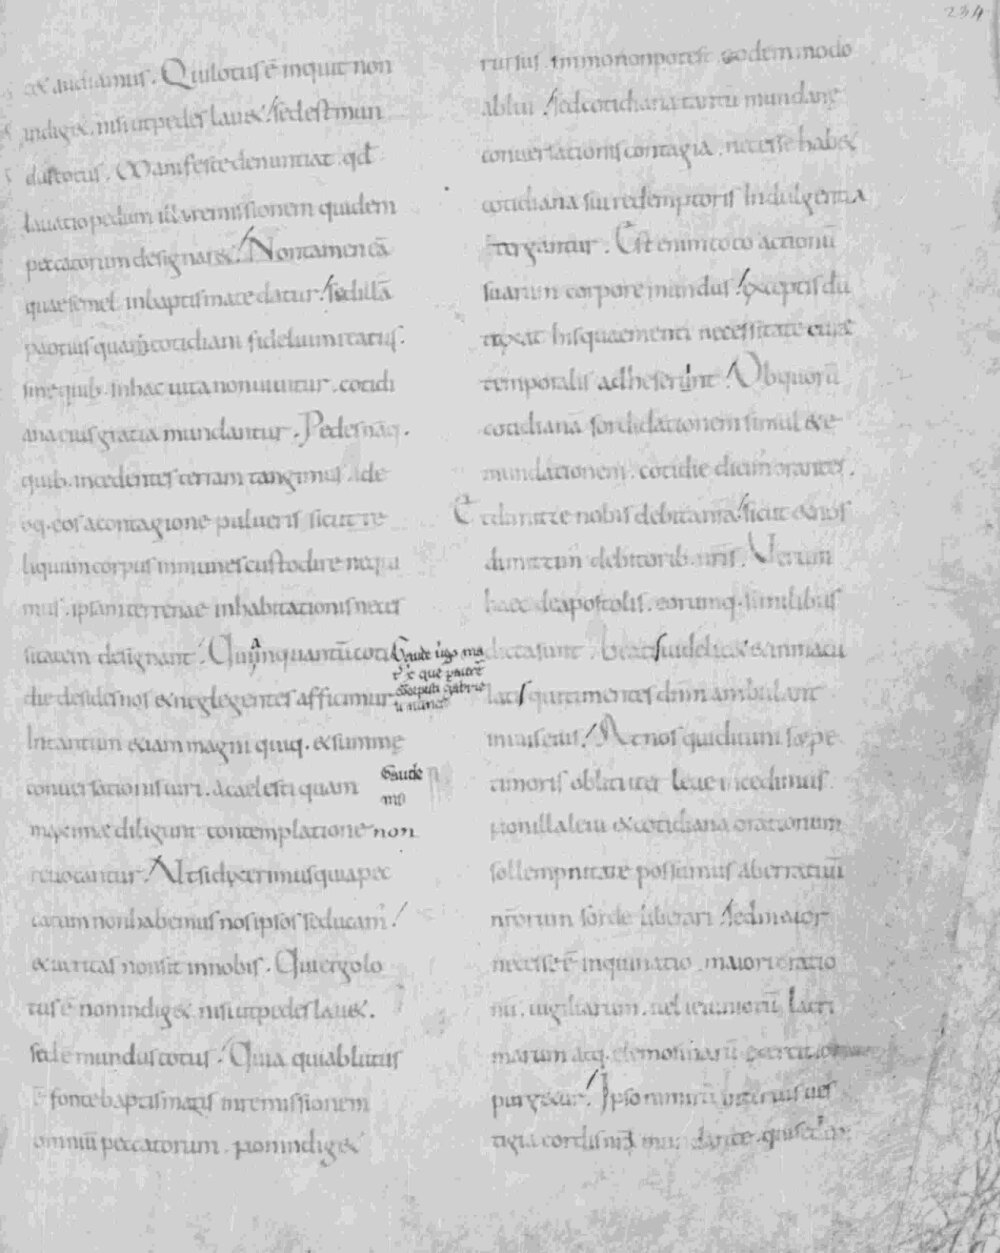 234
exaudiamus. Qui lotus ē inquit non
indiget. nisi ut pedes lauet. sed est mun
dus totus. Manifeste denuntiat. qđ
lauatio pedum illa remissionem quidem
peccatorum designaret. Non tamen eā
quae semel in baptismate datur. sed illā
potius quam cotidiani fideliū reatus.
sine quib. in hac uita non uiuitur. cotidi
ana eius gratia mundantur. Pedes nāq.
quib. incedentes terram tangimus. ide
oq. eos a contagione pulueris sicut re
liquum corpus inmunes custodire nequi
mus. ipsam terrenae inhabitationis neces
sitatem designant. Qua in quantū coti
die desides nos et neglegentes afficimur
Intantum etiam magni quiq. et summe
conuersationis uiri. a caelesti quam
maxime diligunt contemplatione non
reuocantur. At si dixerimus quia pec
catum non habemus nos ipsos seducam.
et ueritas non sit in nobis. Qui ergo lo
tus ē non indiget nisi ut pedes lauet.
sed ē mundus totus. Quia qui ablutus
ē fonte baptismatis in remissionem
omniū peccatorum. non indiget
Gaude uirgo ma
Gaude
rursus. immo non potest eodem modo
ablui. sed cotidiana tantū mundane
conuersationis contagia. necesse habet
cotidiana sui redemptoris Indulgentia
tergantur. Est enim toto actionū
suarum corpore mundus. exceptis dū
taxat his quae menti necessitate curae
temporalis adheserunt. Ob quorū
cotidianā sordidationem simul et e
mundationem. cotidie dicim orantes.
Et dimitte nobis debita nr̄a. sicut et nos
dimittim debitorib. nr̄is. Verum
haec de apostolis. eorumq. similibus
dicta sunt. beatis uidelicet et inmacu
latis qui timentes dnm ambulant
in uiis eius. At nos qui diuini saepe
timoris obliti iter leue incedimus
non illa leui et cotidiana orationum
sollempnitate possumus aberratiuū
nr̄orum sorde liberari. sed maior
necesse ē inquinatio. maiori oratio
nū. uigiliarum. uel ieiuniorū lacri
marum atq. elemosinarū exercitio
purgetur. Ipso nimirū interius ues
tigia cordis nr̄i mundante. qui sedens